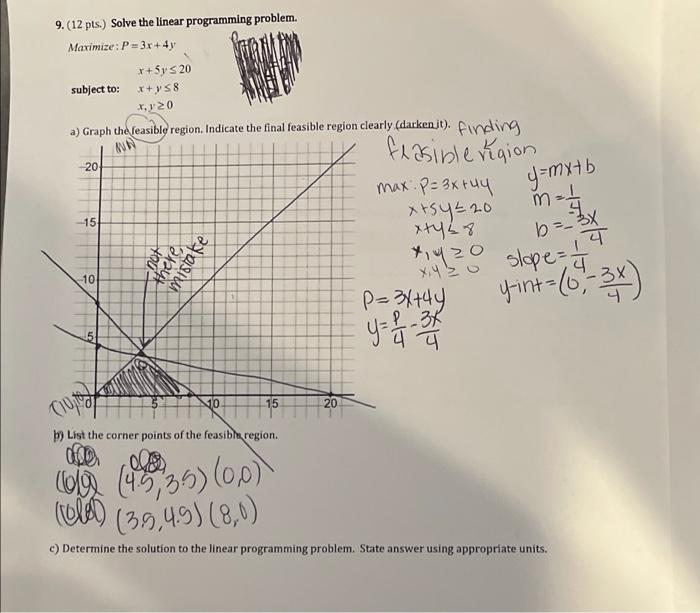 9. (12 pts.) Solve the linear programming problem.
Maximize: P = 3x + 4y
x + 5y ≤ 20
subject to: x + y ≤ 8
x, y ≥ 0
a) Graph the feasible region. Indicate the final feasible region clearly (darken it).
finding
feasible region
max: P=3x+4y
x+5y≤20
x+y≤8
x,y≥0
x,y≥0
P=3x+4y
y=P/4-3x/4
y=mx+b
m=1/4
b=-3x/4
slope=1/4
y-int=(0,-3x/4)
not there, mistake
20
15
10
5
0
5
10
15
20
b) List the corner points of the feasible region.
(4.5,3.5) (0,0)
(3.5,4.5) (8,0)
c) Determine the solution to the linear programming problem. State answer using appropriate units.